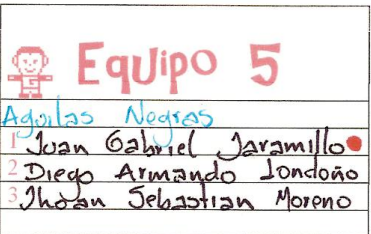 Equipo 5
Aguilas Negras
1 Juan Gabriel Jaramillo
2 Diego Armando Londoño
3 Jhoan Sebastian Moreno